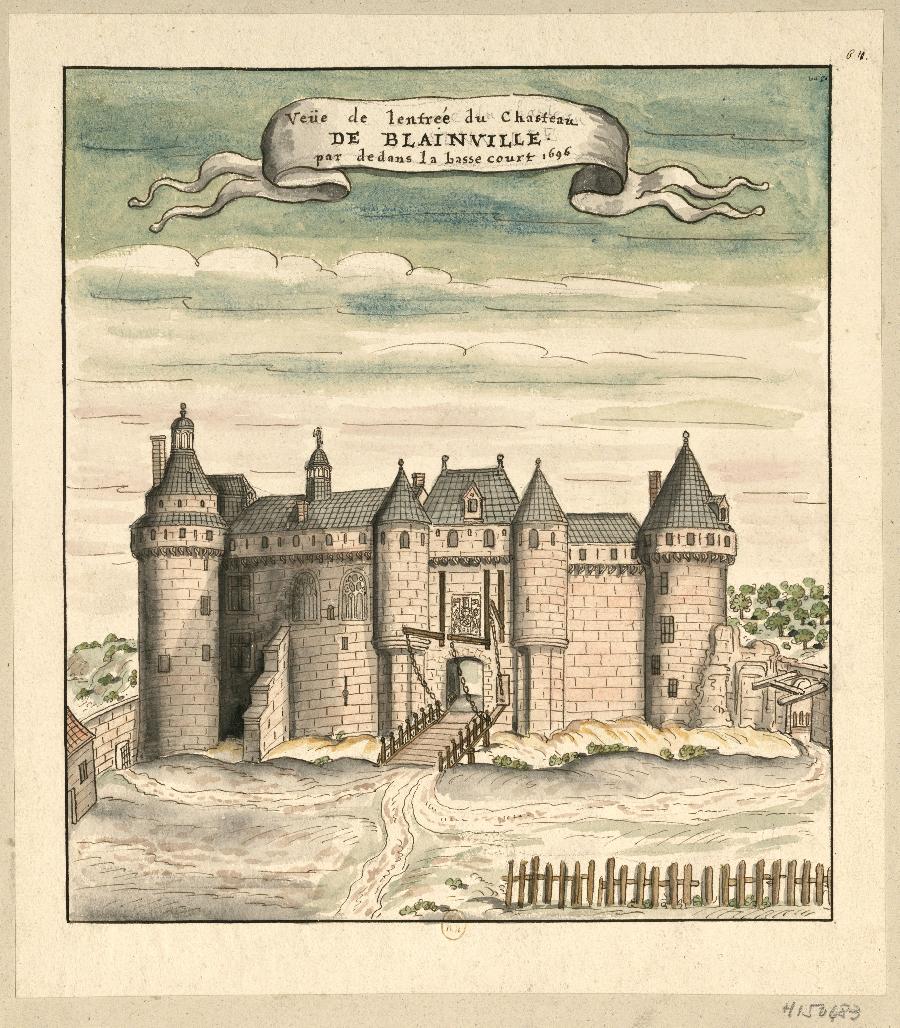 64.
Veüe de lentreé du Chasteau
DE BLAINVILLE.
par dedans la basse court 1696
H150683